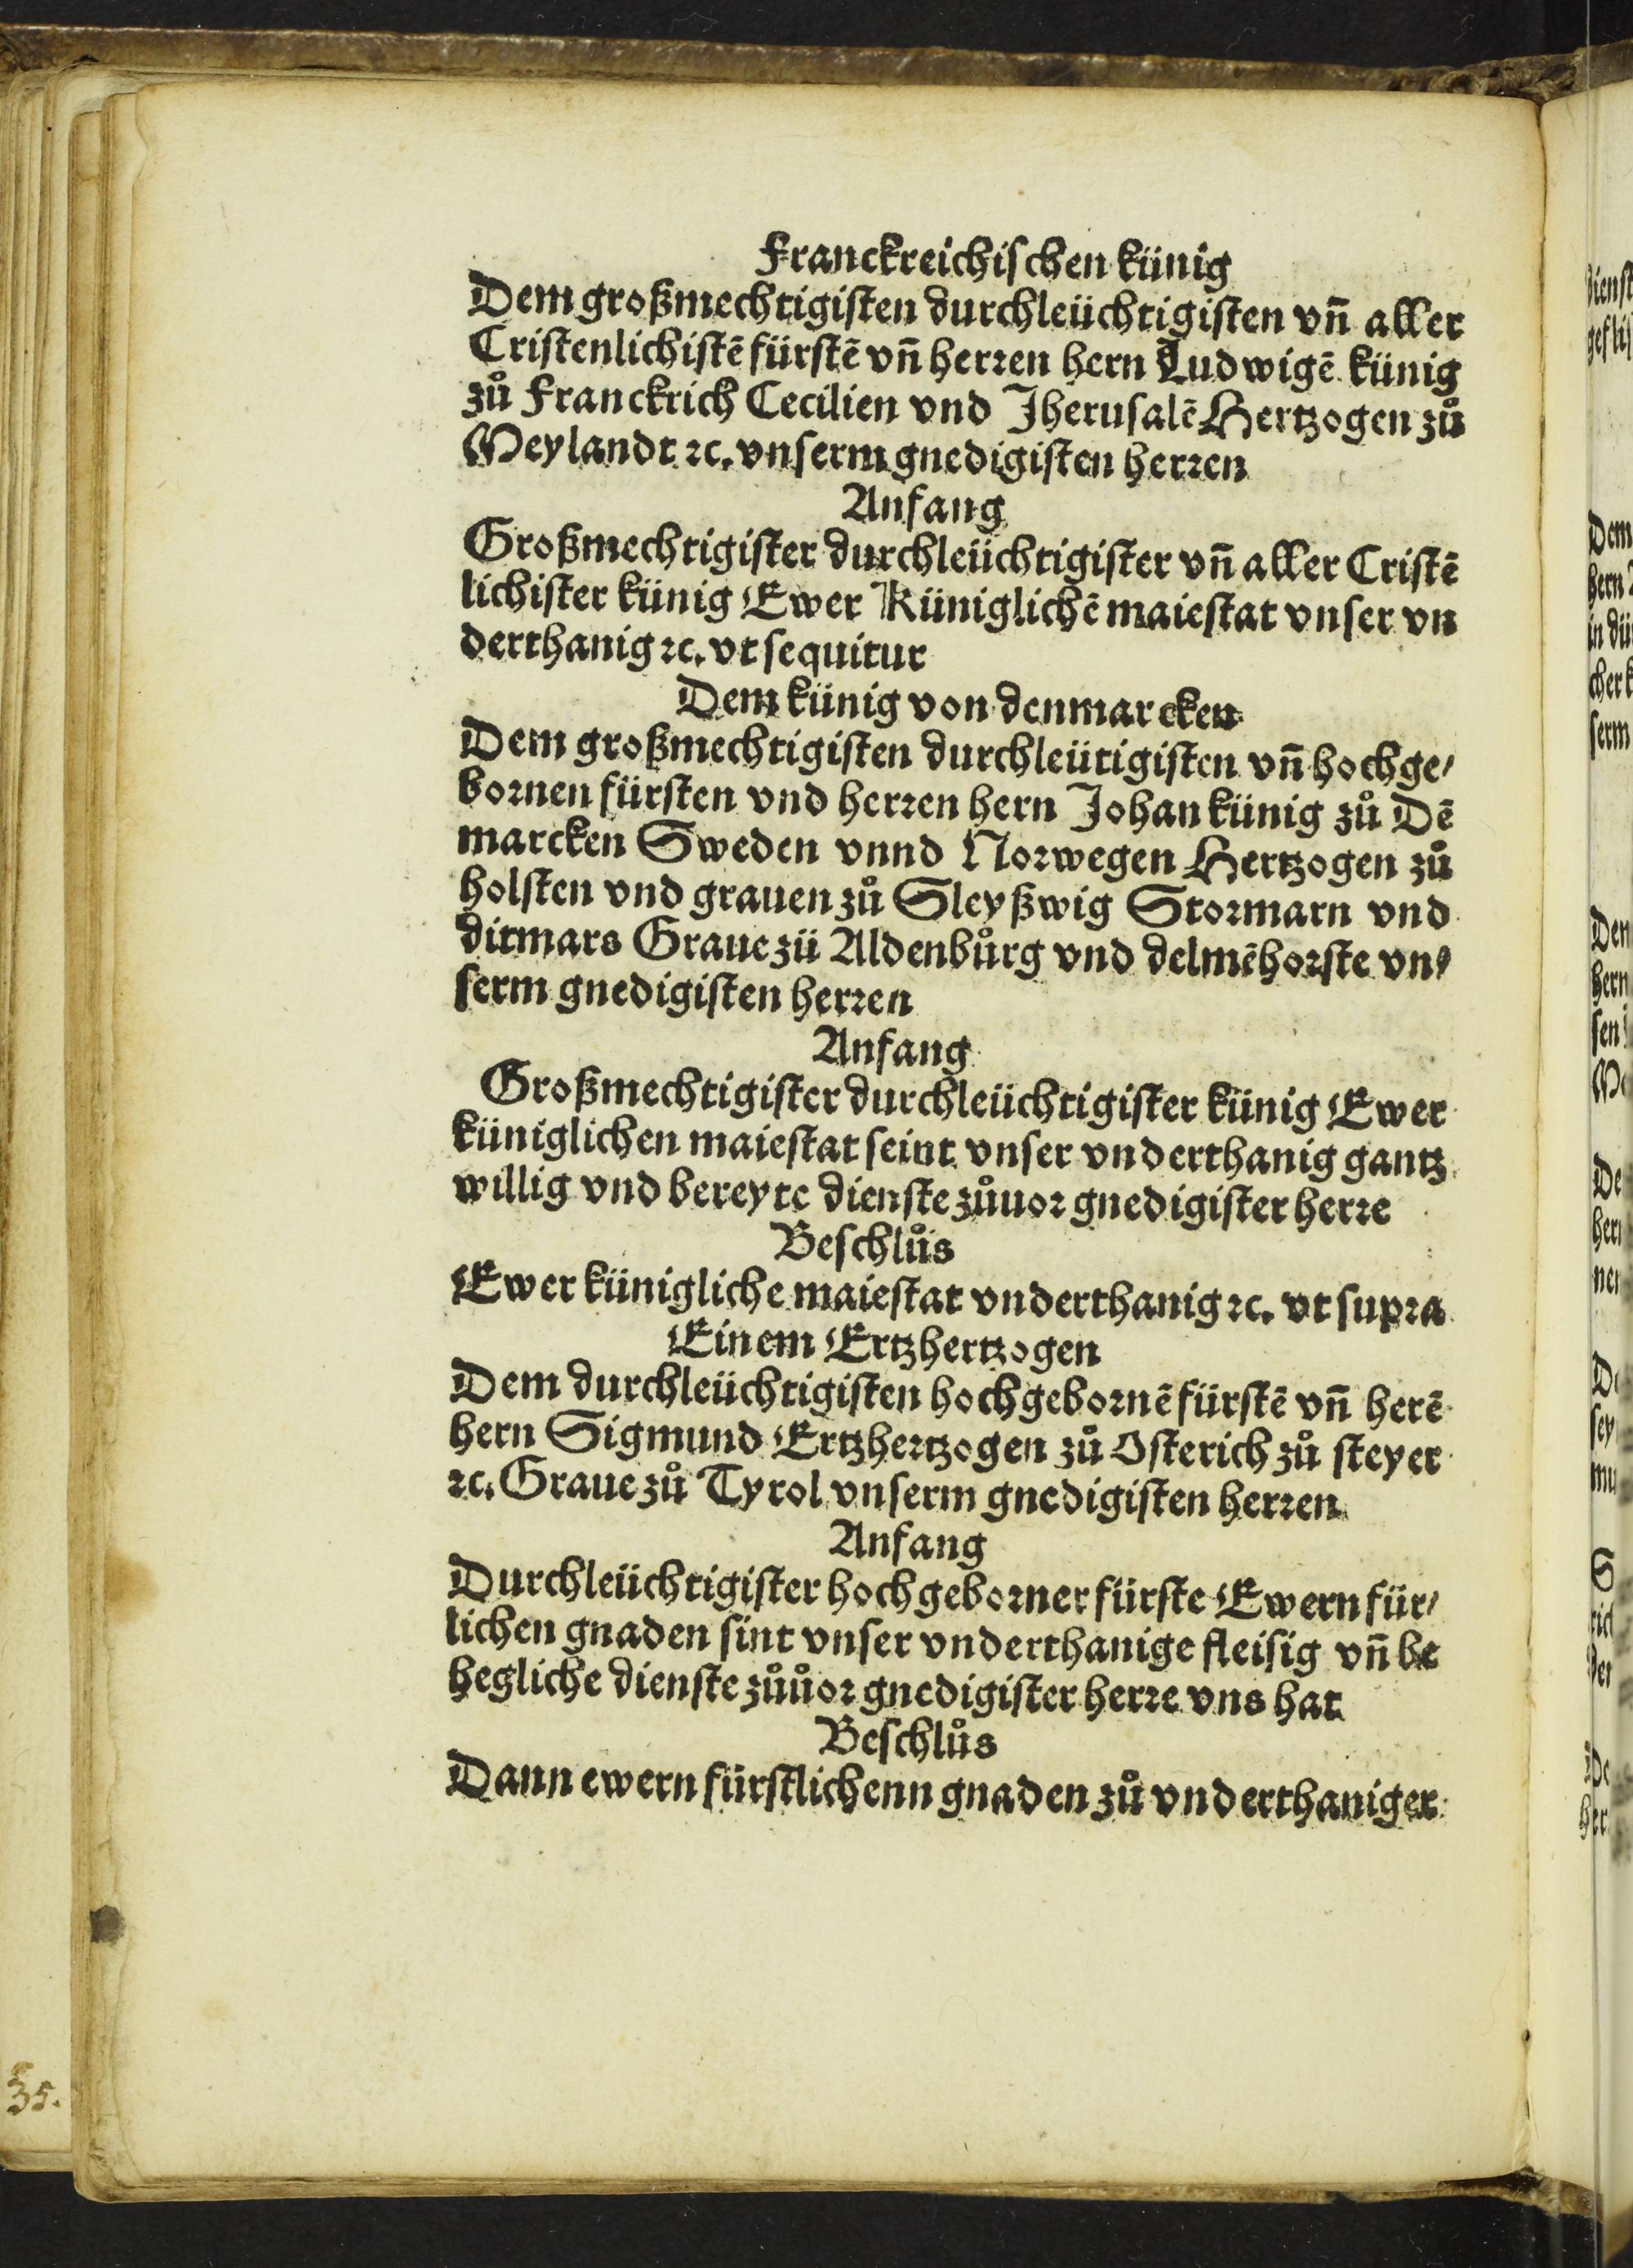 Franckreichischen künig
Dem großmechtigisten durchleüchtigisten vn̄ aller
Cristenlichistē fürstē vn̄ herren hern Ludwigē künig
zů Franckrich Cecilien vnd Jherusalē Hertzogen zů
Meylandt ⁊c. vnserm gnedigisten herren
Anfang
Großmechtigister durchleüchtigister vn̄ aller Cristē
lichister künig Ewer Küniglichē maiestat vnser vn
derthanig ⁊c. vt sequitur
Dem künig von denmarcken
Dem großmechtigisten durchleütigisten vn̄ hochge/
bornen fürsten vnd herren hern Johan künig zů Dē
marcken Sweden vnnd Norwegen Hertzogen zů
holsten vnd grauen zů Sleyßwig Stormarn vnd
ditmars Graue zü Aldenbůrg vnd delmēhorste vn/
serm gnedigisten herren
Anfang
Großmechtigister durchleüchtigister künig Ewer
küniglichen maiestat seint vnser vnderthanig gantz
willig vnd bereyte dienste zůuor gnedigister herre
Beschlůs
Ewer künigliche maiestat vnderthanig ⁊c. vt supra
Einem Ertzhertzogen
Dem durchleüchtigisten hochgebornē fürstē vn̄ herē
hern Sigmund Ertzhertzogen zů Osterich zů steyer
⁊c. Graue zů Tyrol vnserm gnedigisten herren
Anfang
Durchleüchtigister hochgeborner fürste Ewern für/
lichen gnaden sint vnser vnderthanige fleisig vn̄ be
hegliche dienste zůůor gnedigister herre vns hat
Beschlůs
Dann ewern fürstlichenn gnaden zů vnderthaniger
35.